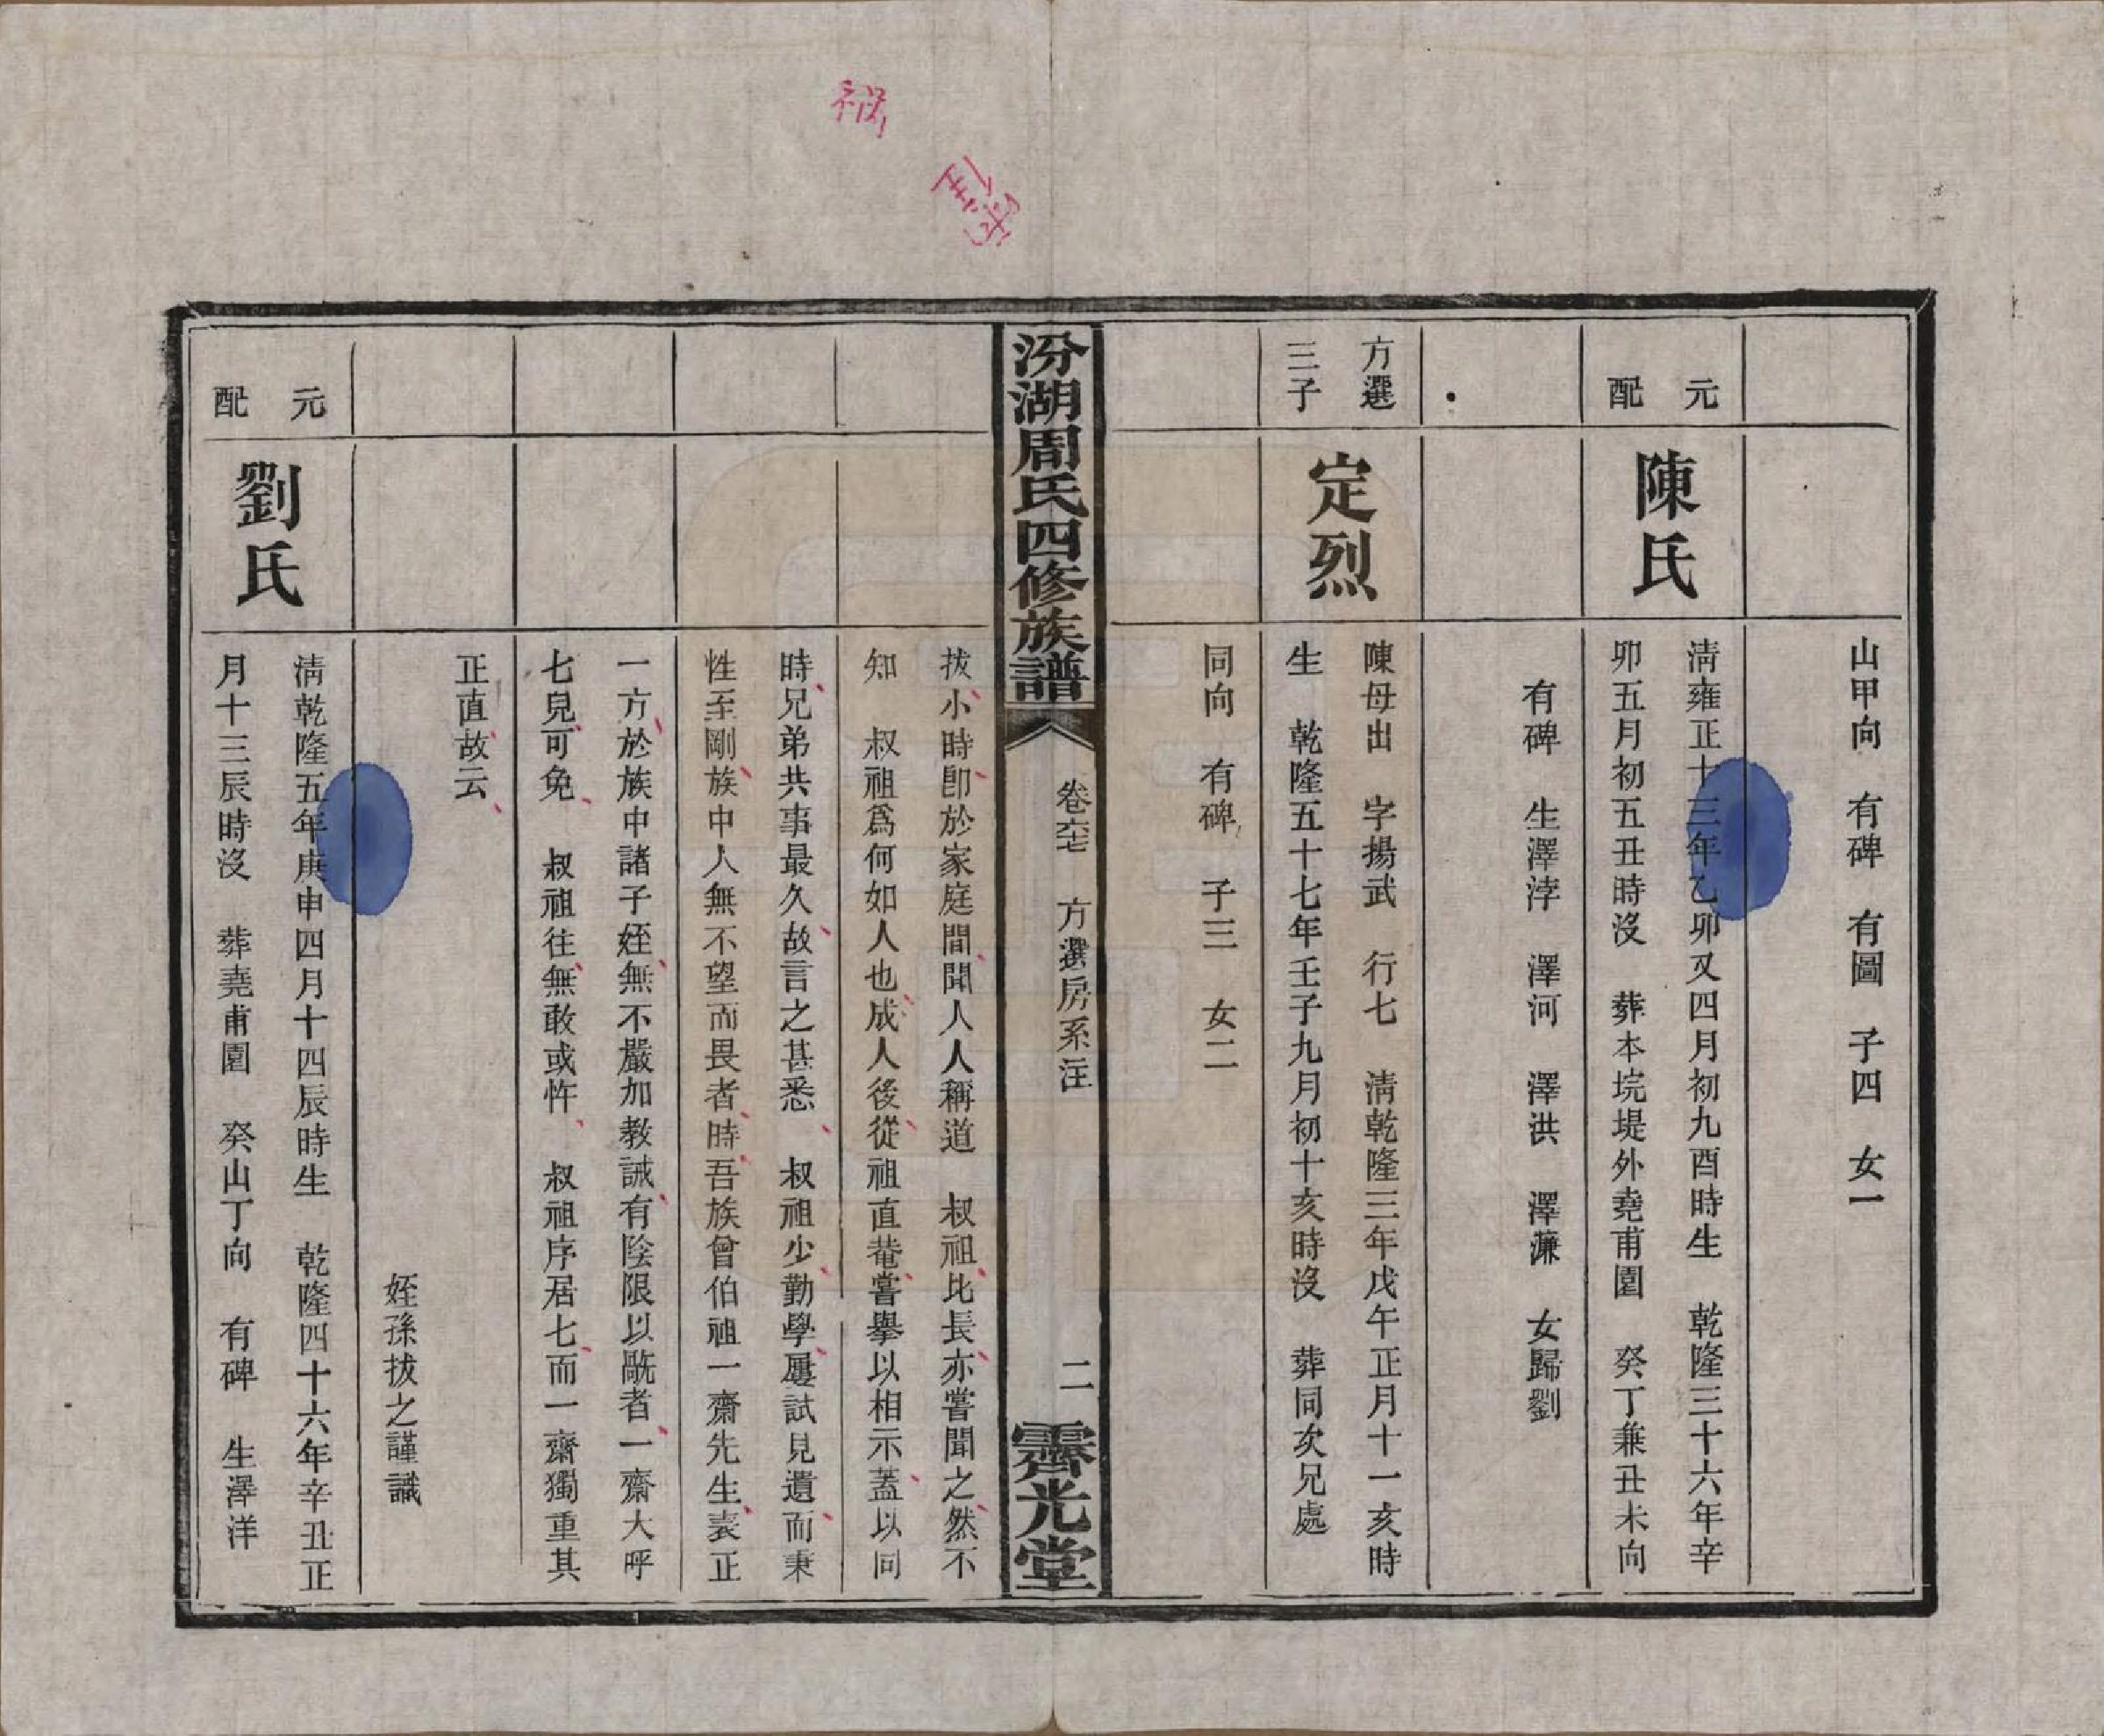 山甲向　有碑　有圖　子四　女一
元配
陳氏
清雍正十三年乙卯又四月初九酉時生　乾隆三十六年辛
卯五月初五丑時沒　葬本垸堤外堯甫園　癸丁兼丑未向
有碑　生澤浡　澤河　澤洪　澤濂　女歸劉
方選
三子
定烈
陳母出　字揚武　行七　清乾隆三年戊午正月十一亥時
生　乾隆五十七年壬子九月初十亥時沒　葬同次兄處
同向　有碑　子三　女二
汾湖周氏四修族譜
卷六七　方選房系注
二
霽光堂
拔小時卽於家庭間聞人人稱道　叔祖比長亦嘗聞之然不
知　叔祖爲何如人也成人後從祖直菴嘗舉以相示蓋以同
時兄弟共事最久故言之甚悉　叔祖少勤學屢試見遺而秉
性至剛族中人無不望而畏者時吾族曾伯祖一齋先生表正
一方於族中諸子姪無不嚴加教誡有陰限以毆者一齋大呼
七兒可免　叔祖往無敢或忤　叔祖序居七而一齋獨重其
正直故云
姪孫拔之謹識
元配
劉氏
清乾隆五年庚申四月十四辰時生　乾隆四十六年辛丑正
月十三辰時沒　葬堯甫園　癸山丁向　有碑　生澤洋